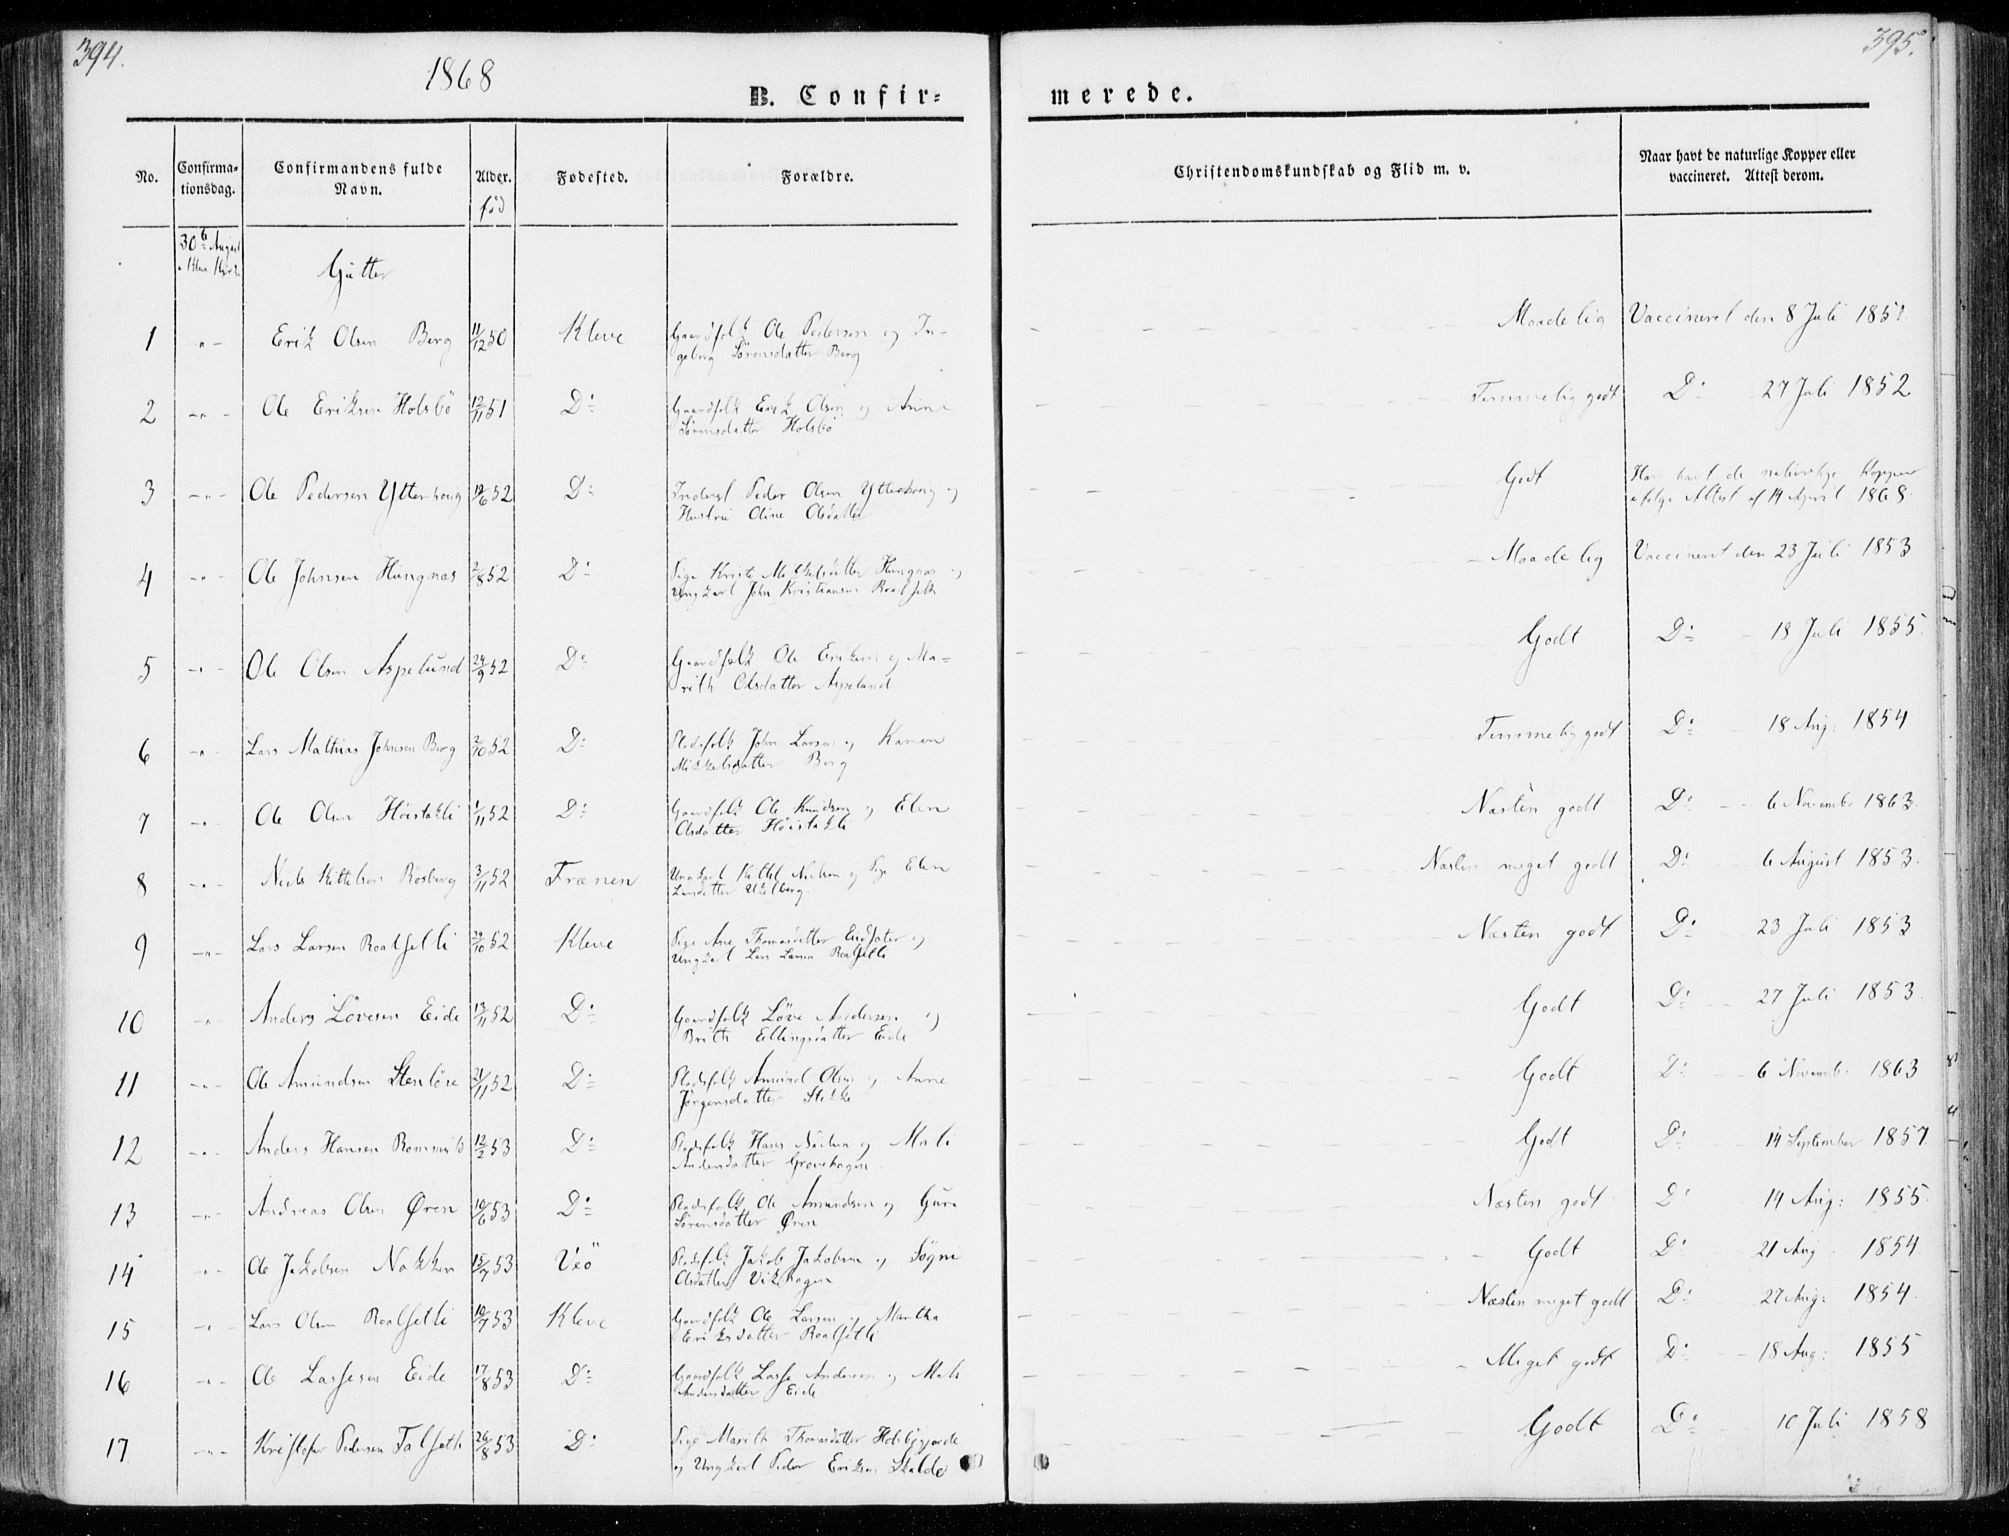 394.
1868
B. Confir=
merede.
395.
No.
Confirma-
tionsdag.
Confirmandens fulde
Navn.
Alder.
fød
Fødested.
Forældre.
Christendomskundskab og Flid m. v.
Naar havt de naturlige Kopper eller
vaccineret. Attest derom.
30 August
Gutter
1 -"- Erik Olsen Berg 11/12 50 Kleve Gaardfolk Ole Pedersen og In-
geborg Sørensdatter Berg
Maadelig Vaccineret den 8 Juli 1851.
2 -"- Ole Eriksen Holsbö 12/11 51 Do Gaardfolk Erik Olsen og Anne
Sørensdatter Holsbö
Temmelig godt Do 27 Juli 1852
3 -"- Ole Pedersen Ytterhoug 19/6 52 Do Inderst Peder Olsen Ytterhoug og
Hustru Oline Olsdatter
Godt Har havt de naturlige Kopper
ifølge Attest af 14 April 1868.
4 -"- Ole Johnsen Hungnæs 2/8 52 Do Pige Hungnæs og
Ungkarl John Kristiansen
Maadelig Vaccineret den 23 Juli 1853
5 -"- Ole Olsen Aspelund 24/9 52 Do Gaardfolk Ole Eriksen og Ma-
rith Olsdatter Aspelund
Godt Do 18 Juli 1855.
6 -"- Lars Mathias Johnsen Berg 2/10 52 Do Pladsfolk John Larsen og Karen
Mikkelsdatter Berg
Temmelig godt Do 18 Aug: 1854
7 -"- Ole Olsen Höistakli 1/11 52 Do Gaardfolk Ole Knudsen og Elen
Olsdatter Höistakli
Næsten godt Do 6 November 1863.
8 -"- Niels Kittelsen Rösberg 3/11 52 Frænen Ungkarl Kittel Nielsen og Pige Elen
Næsten meget godt Do 6 August 1853.
9 -"- Lars Larsen Roalsetli 29/10 52 Kleve Pige Ane Thomasdatter Eidsæter og
Ungkarl Lars Larsen Roalsetli
Næsten godt Do 23 Juli 1853
10 -"- Anders Lövesen Eide 13/11 52 Do Gaardfolk Löve Andersen og
Brith Ellingsdatter Eide
Godt Do 27 Juli 1853.
11 -"- Ole Amundsen Stenlöse 21/11 52 Do Pladsfolk Amund Olsen og Anne
Jörgensdatter
Godt Do 6 November 1863
12 -"- Anders Hansen 12/2 53 Do Pladsfolk Hans Nielsen og Mali
Andersdatter Grovehagen
Godt Do 14 September 1857.
13 -"- Andreas Olsen Øren 10/6 53 Do Pladsfolk Ole Amundsen og Guru
Sørensdatter Øren
Næsten godt Do 14 Aug: 1855.
14 -"- Ole Jakobsen Nakken 15/7 53 Veö Pladsfolk Jakob Jakobsen og Søgne
Olsdatter Vikhagen
Godt Do 21 Aug 1854.
15 -"- Lars Olsen Roalsetli 19/7 53 Kleve Gaardfolk Ole Larsen og Martha
Eriksdatter Roalsetli
Næsten meget godt Do 27 Aug: 1854
16 -"- Ole Lassesen Eide 17/8 53 Do Gaardfolk Lasse Andersen og Mali
Andersdatter Eide
Meget godt Do 18 Aug: 1855
17 -"- Kristofer Pedersen Talseth 26/8 53 Do Pige Marith Thomasdatter
og Ungkarl Peder Eriksen Skalde
Godt Do 10 Juli 1858